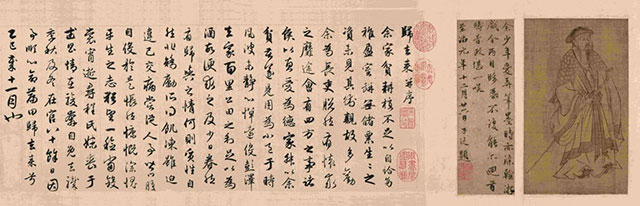 歸去來并序
余家貧耕植不足以自給幼
稚盈室缾無儲粟生生之
資未見其術親故多勸
余為長史脫然有懷求
之靡途會有四方之事諸
侯以惠愛為德家叔以余
貧苦遂見用為小邑于時
風波未靜心憚遠役彭澤
去家百里公田之利足以為
酒故便求之及少日眷然
有歸與之情何則質性自
然非矯勵所得飢凍雖迫
違己交病嘗從人事皆口腹
自役於是悵然慷慨深愧
平生之志猶望一稔當斂
裳宵逝尋程氏妹喪于
武昌情在駿奔自免去職
季秋及冬在官八十餘日因
事順心命篇曰歸去來兮
乙巳歲十一月也
余少年愛弄筆墨時
至治元年十二月廿日題